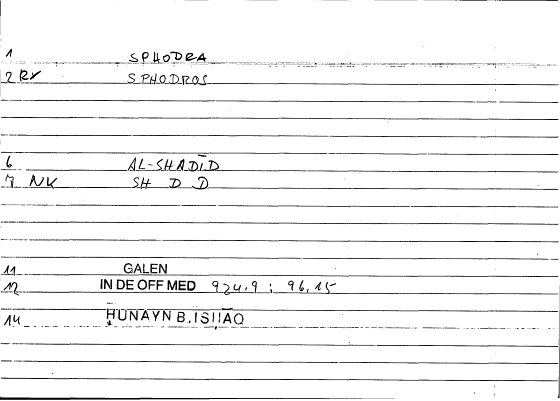 1 SPHODRA
2 RY SPHODROS
6 AL-SHADĪD
7 NK SH D D
11 GALEN
12 IN DE OFF MED 924.9 : 96,15
14 ḤUNAYN B.ISḤĀQ